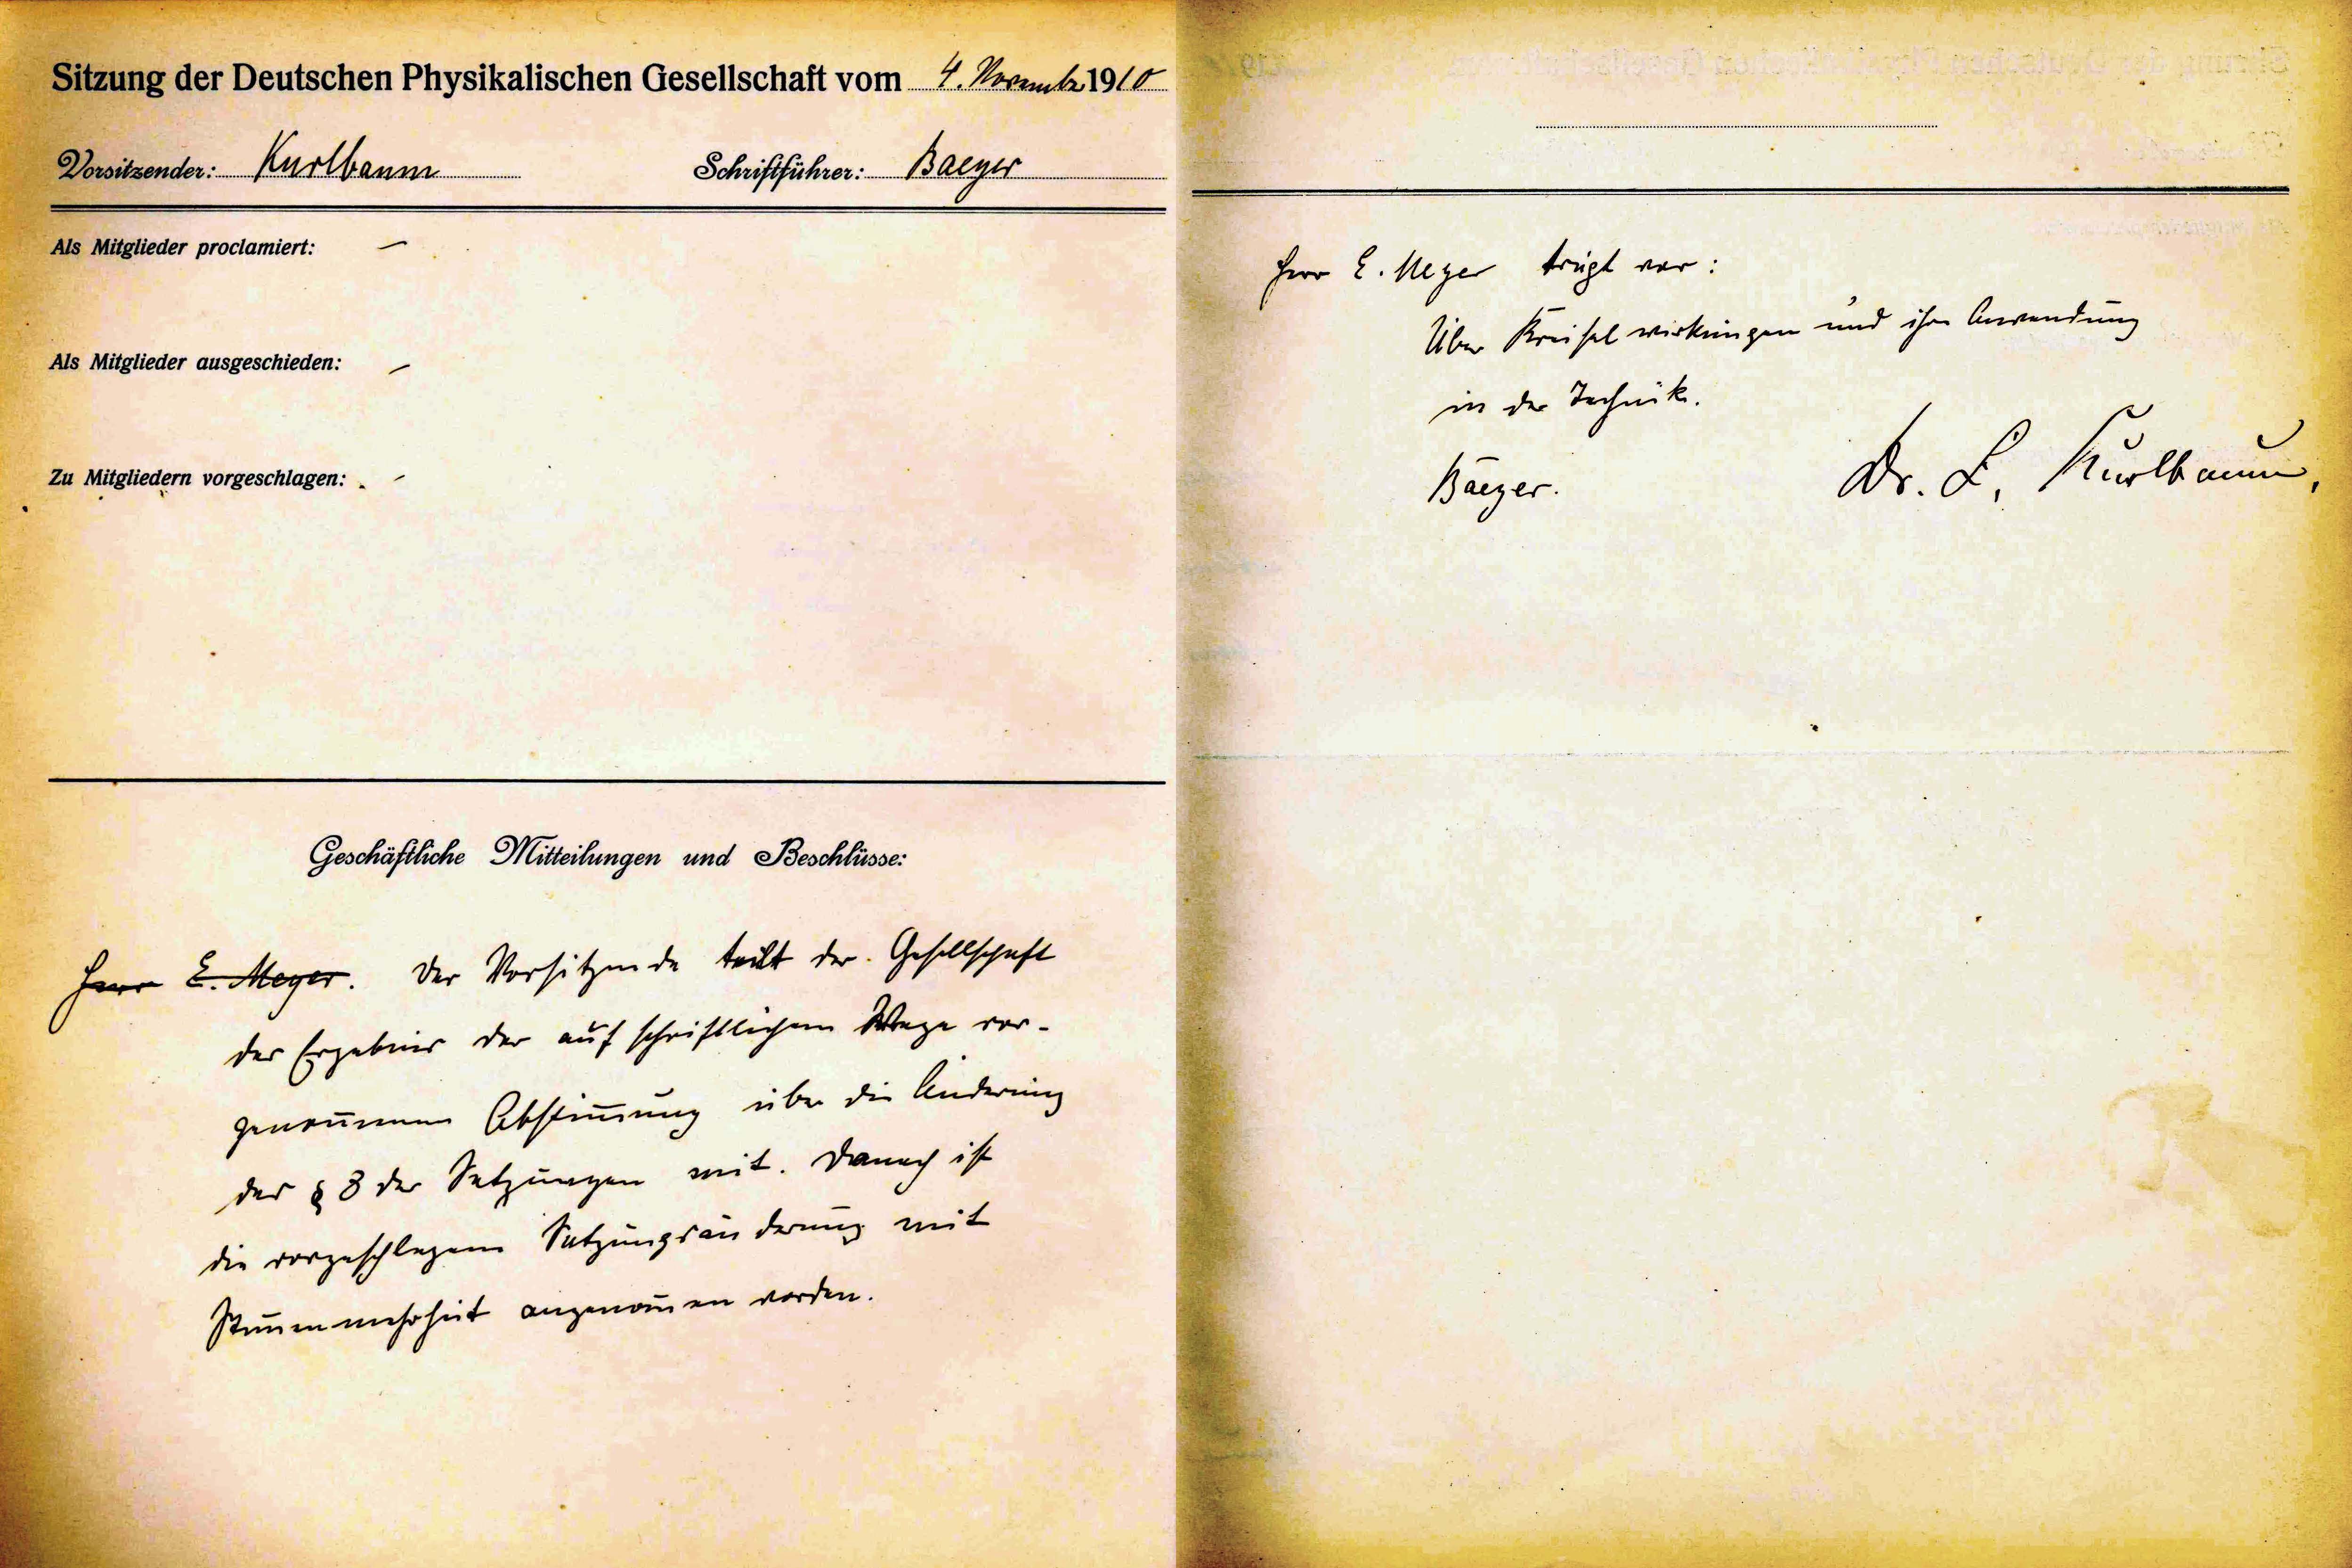 Sitzung der Deutschen Physikalischen Gesellschaft vom 4. November 1910
Vorsitzender: Kurlbaum Schriftführer: Baeyer
Als Mitglieder proclamiert: –
Als Mitglieder ausgeschieden: –
Zu Mitgliedern vorgeschlagen: –
Geschäftliche Mitteilungen und Beschlüsse:
Herr E. Meyer. Der Vorsitzende teilt der Gesellschaft
das Ergebnis der auf schriftlichem Wege vor-
genom̅enen Abstim̅ung über die Änderung
des § 8 der Satzungen mit. Danach ist
die vorgeschlagene Satzungsänderung mit
Stim̅enmehrheit angenom̅en worden.
Herr E. Meyer trägt vor:
Über Kreiselwirkungen und ihre Anwendung
in der Technik.
Baeyer. Dr. F. Kurlbaum,